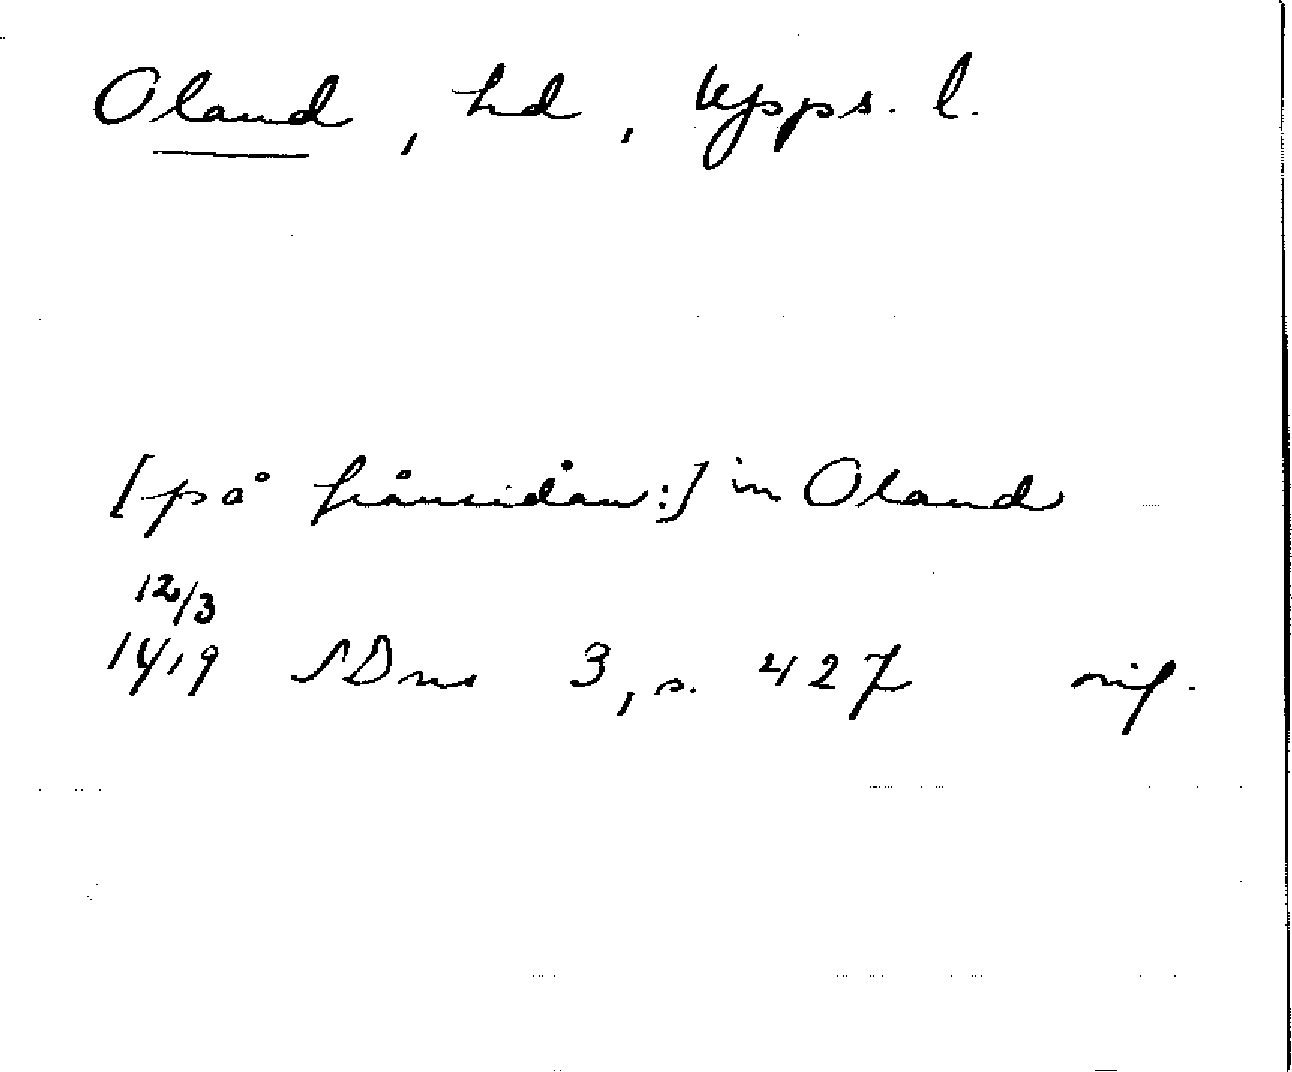 Oland, hd, Upps. l.
[på frånsidan:] in Oland
12/3
1419 SDns 3, s. 427 orig.